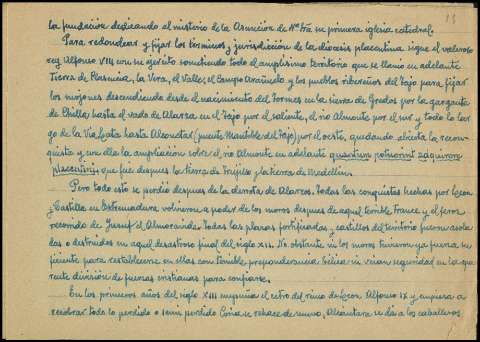 13
la fundación dedicando al misterio de la Asunción de Nª Sra su primera iglesia catedral.
Para redondear y fijar los términos y jurisdicción de la diócesis placentina sigue el valeroso
rey Alfonso VIII con su ejército sometiendo todo el amplísimo territorio que se llamó en adelante
tierra de Plasencia, la Vera, el Valle, el Campo Arañuelo y los pueblos ribereños del Tajo para fijar
los mojones descendiendo desde el nacimiento del Tormes en la sierra de Gredos por la garganta
de Chilla, hasta el vado de Alarza en el Tajo por el saliente, el rio Almonte por el sur y todo lo lar-
go de la Via lata hasta Alconetar (puente Mantible del Tajo) por el oeste, quedando abierta la recon-
quista y con ella la ampliación sobre el rio Almonte en adelante quantum potuerint adquirere
placentini que fue despues la tierra de Trujillo y la tierra de Medellin.
Pero todo esto se perdió despues de la derrota de Alarcos. Todas las conquistas hechas por Leon
y Castilla en Extremadura volvieron a poder de los moros despues de aquel terrible trance y el feroz
recorrido de Jusuf el Almorávide. Todas las plazas fortificadas y castillos del territorio fueron asola-
das o destruidos en aquel desastroso final del siglo XII. No obstante ni los moros tuvieron ya fuerza su-
ficiente para establecerse en ellas con temible preponderancia bélica ni veian seguridad en la apa-
rente división de fuerzas cristianas para confiarse.
En los primeros años del siglo XIII empuña el cetro del reino de Leon Alfonso IX y empieza a
recobrar todo lo perdido o semi perdido Coria se rehace de nuevo, Alcántara se da a los caballeros